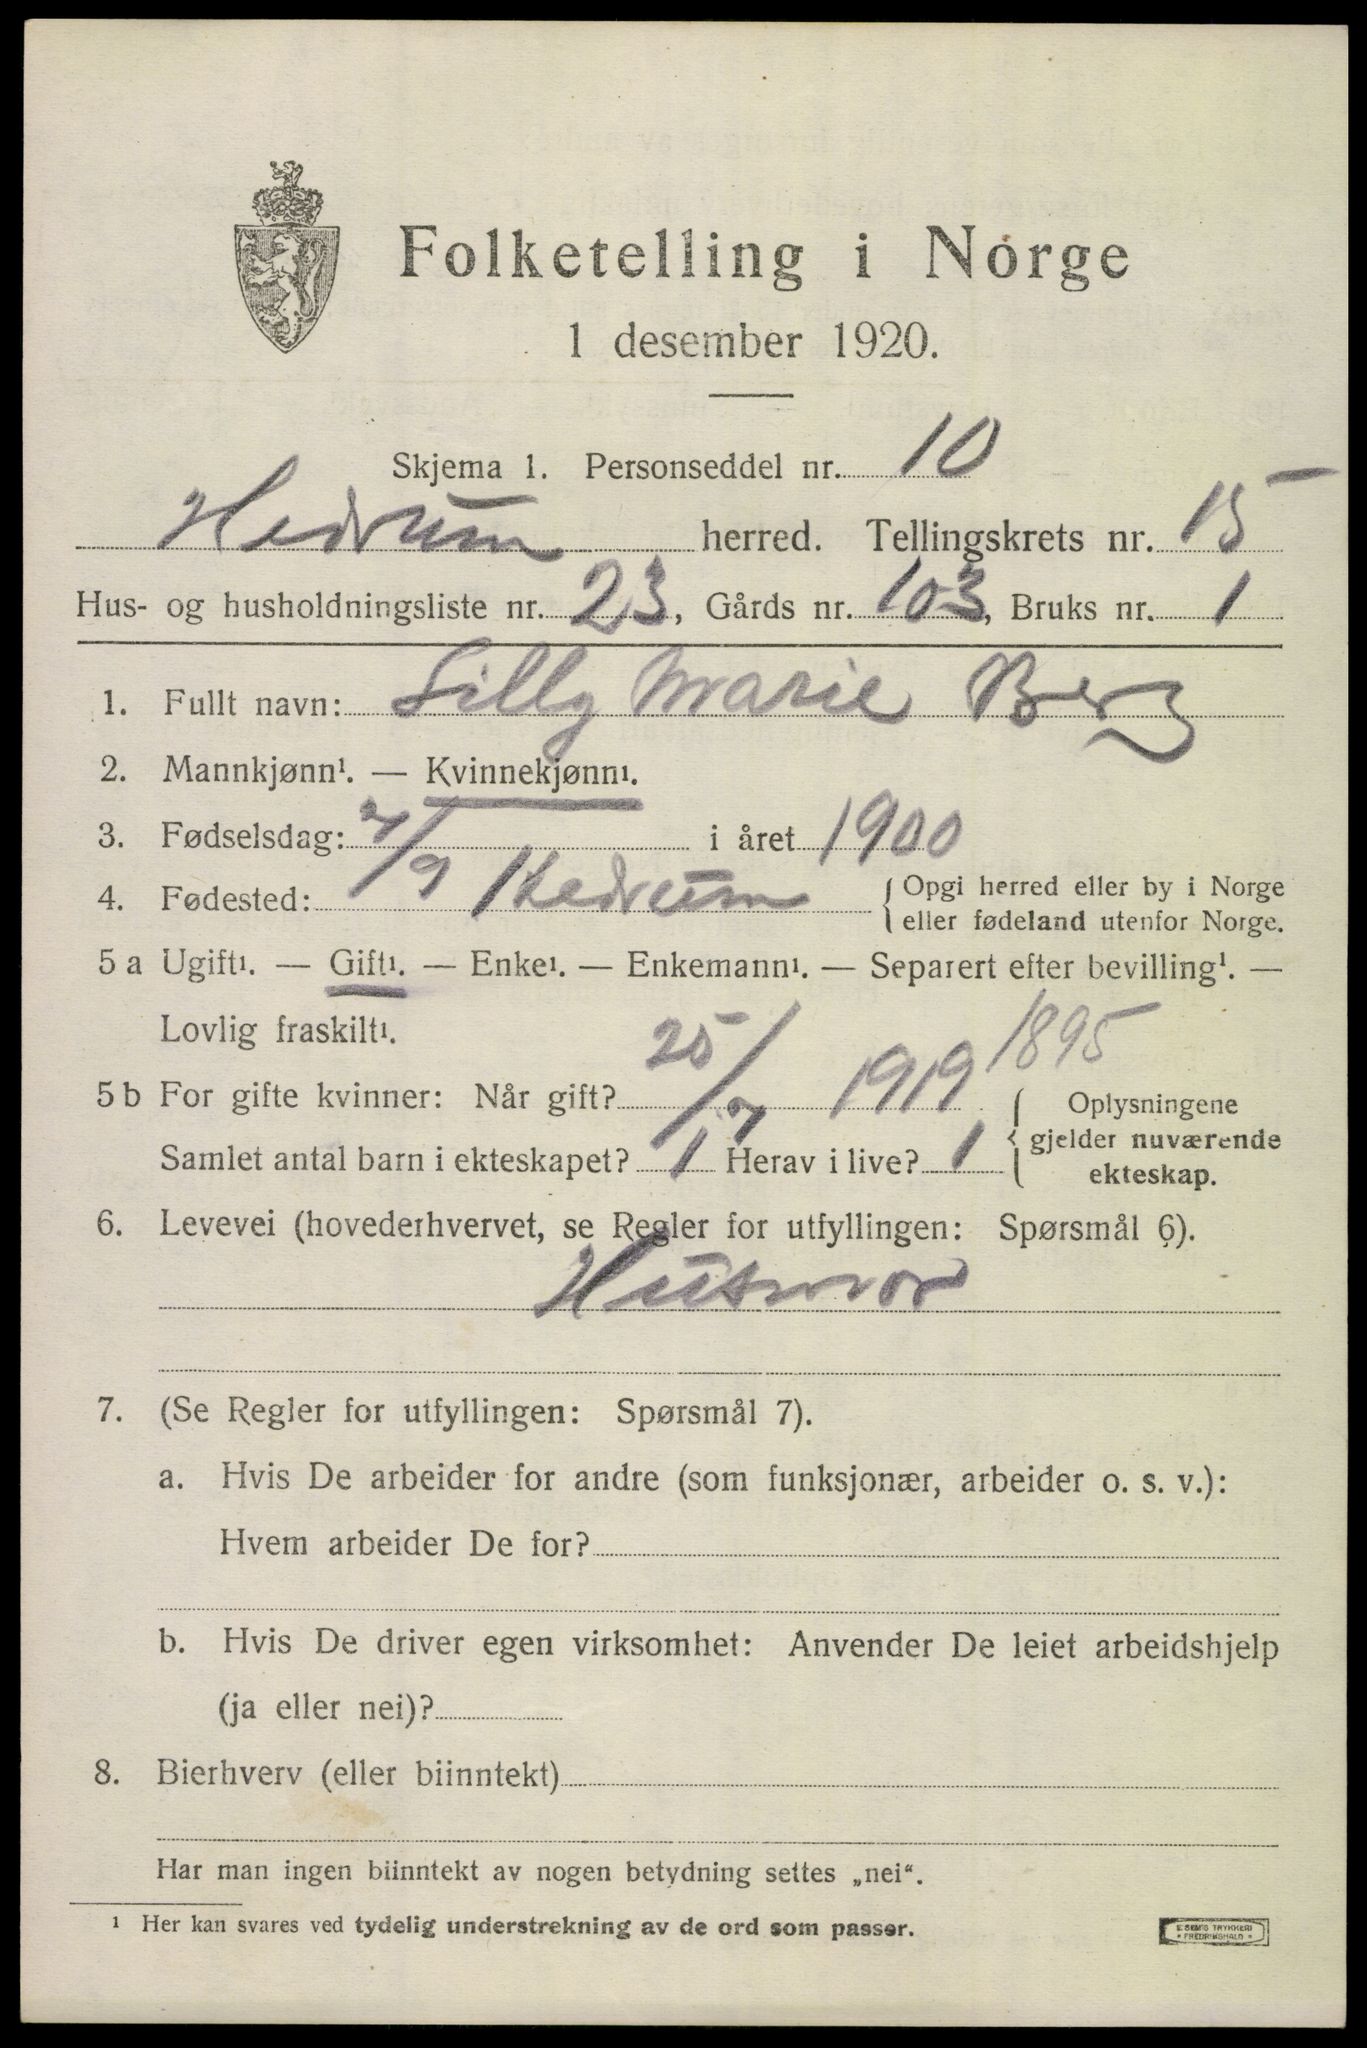 Folketelling i Norge
1 desember 1920.
Skjema 1. Personseddel nr. 10
Hedrum herred. Tellingskrets nr. 15
Hus- og husholdningsliste nr. 23, Gårds nr. 103, Bruks nr. 1
1. Fullt navn: Lilly Marie Berg
2. Mannkjønn¹. — Kvinnekjønn¹.
3. Fødselsdag: 7/9 i året 1900
4. Fødested: Hedrum { Opgi herred eller by i Norge
eller fødeland utenfor Norge.
5 a Ugift¹. — Gift¹. — Enke¹. — Enkemann¹. — Separert efter bevilling¹. —
Lovlig fraskilt¹.
1895
5 b For gifte kvinner: Når gift? 25/7 1919 { Oplysningene
gjelder nuværende
ekteskap.
Samlet antal barn i ekteskapet? 1 Herav i live? 1
6. Levevei (hovederhvervet, se Regler for utfyllingen: Spørsmål 6).
Husmor
7. (Se Regler for utfyllingen: Spørsmål 7).
a. Hvis De arbeider for andre (som funksjonær, arbeider o. s. v.):
Hvem arbeider De for?
b. Hvis De driver egen virksomhet: Anvender De leiet arbeidshjelp
(ja eller nei)?
8. Bierhverv (eller biinntekt)
Har man ingen biinntekt av nogen betydning settes „nei“.
¹ Her kan svares ved tydelig understrekning av de ord som passer.
E. SEM'S TRYKKERI
• FREDRIKSHALD •